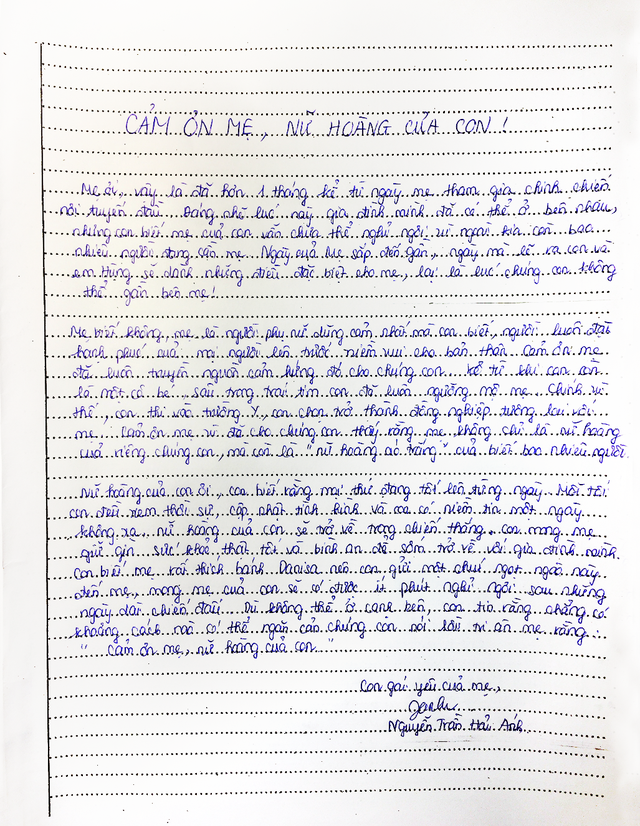 CẢM ƠN MẸ, NỮ HOÀNG CỦA CON!
Mẹ ơi, vậy là đã hơn 1 tháng kể từ ngày mẹ tham gia chinh chiến
nơi tuyến đầu. Đáng nhẽ lúc này gia đình mình đã có thể ở bên nhau,
nhưng con biết mẹ của con vẫn chưa thể nghỉ ngơi vì ngoài kia còn bao
nhiêu người đang cần mẹ. Ngày của Mẹ sắp đến gần, ngày mà lẽ ra con và
em Hưng sẽ dành những điều đặc biệt cho mẹ, lại là lúc chúng con không
thể gần bên mẹ!
Mẹ biết không, mẹ là người phụ nữ dũng cảm nhất mà con biết, người luôn đặt
hạnh phúc của mọi người lên trước niềm vui cho bản thân. Cảm ơn mẹ
đã luôn truyền nguồn cảm hứng đó cho chúng con. Kể từ khi con còn
là một cô bé, sâu trong trái tim con đã luôn ngưỡng mộ mẹ. Chính vì
thế, con thi vào trường Y, con chọn trở thành đồng nghiệp tương lai với
mẹ. Cảm ơn mẹ vì đã cho chúng con thấy rằng, mẹ không chỉ là nữ hoàng
của riêng chúng con, mà còn là "nữ hoàng áo trắng" của biết bao nhiêu người.
Nữ hoàng của con ơi, con biết rằng mọi thứ đang tốt lên từng ngày. Mỗi tối
con đều xem thời sự, cập nhật tình hình và con có niềm tin một ngày
không xa, nữ hoàng của con sẽ trở về trong chiến thắng. Con mong mẹ
giữ gìn sức khoẻ thật tốt và bình an để sớm trở về với gia đình mình.
Con biết mẹ rất thích bánh Danisa nên con gửi một chút ngọt ngào này
đến mẹ, mong mẹ của con sẽ có được ít phút nghỉ ngơi sau những
ngày dài chiến đấu. Dù không thể ở cạnh bên, con tin rằng chẳng có
khoảng cách mà có thể ngăn cản chúng con nói lời tri ân mẹ rằng:
"Cảm ơn mẹ, nữ hoàng của con"
Con gái yêu của mẹ,
Nguyễn Trần Hải Anh